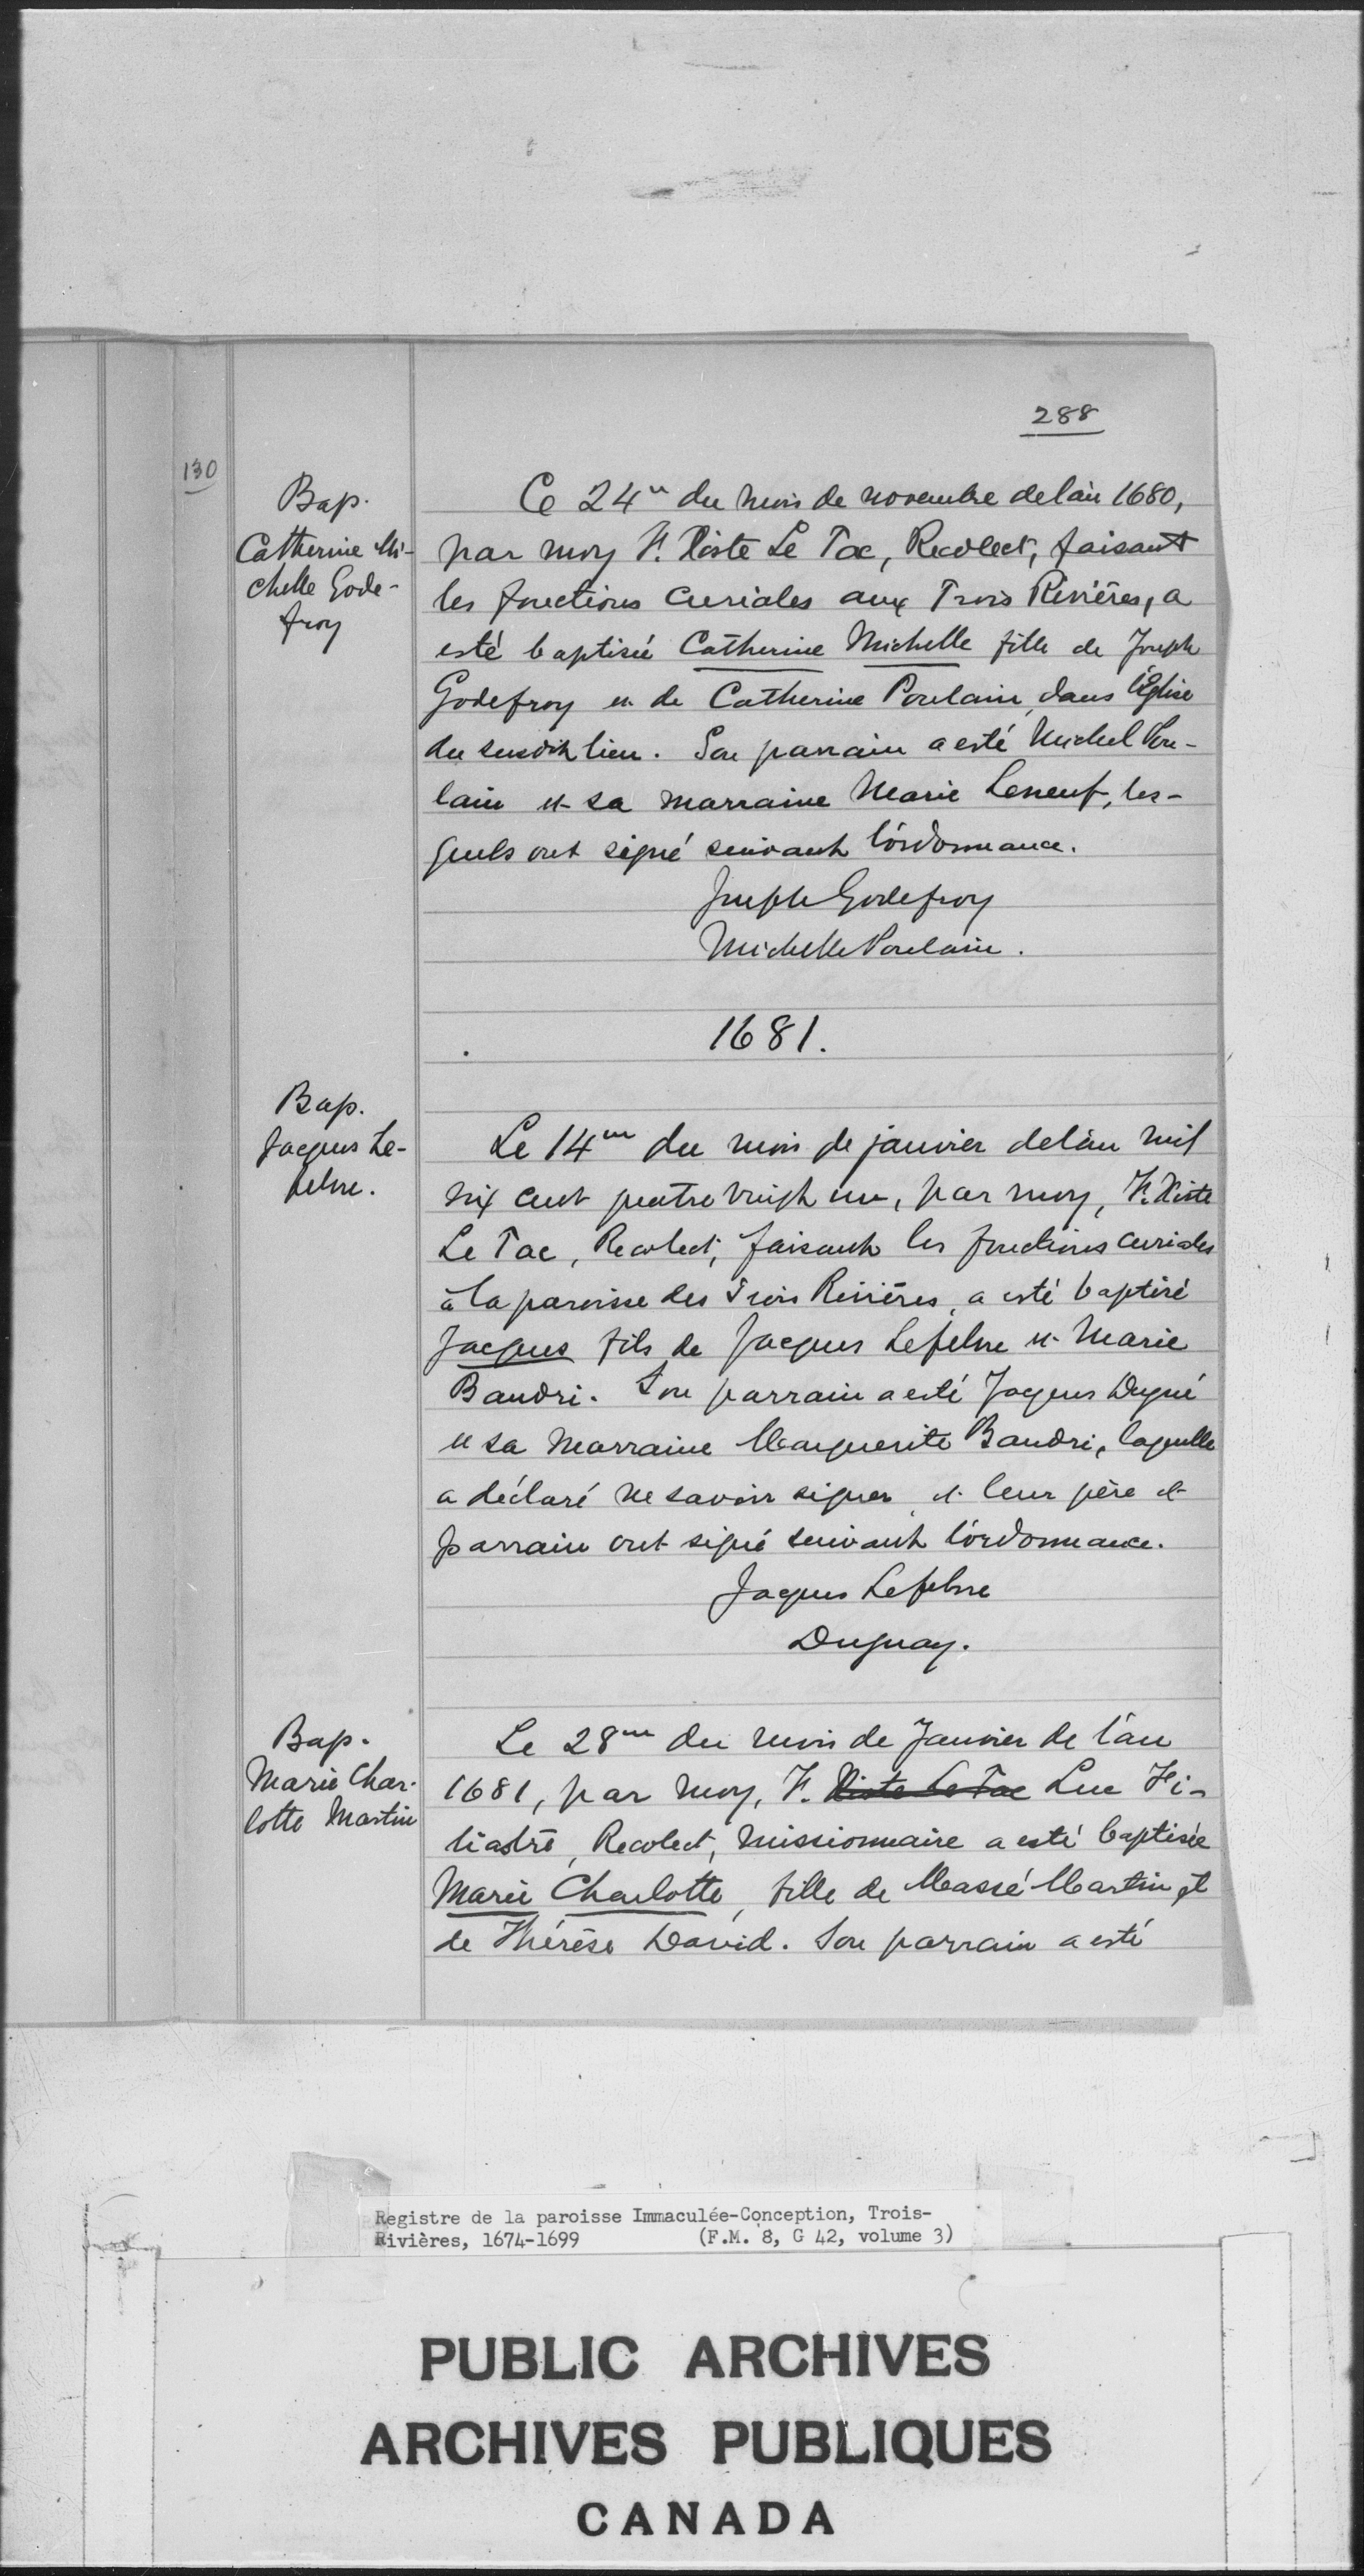 288
130
Bap.
Catherine Mi-
chelle Gode-
froy
Ce 24e du mois de novembre de l'an 1680,
par moy F. Xiste Le Tac, Recolect, faisant
les fonctions curiales aux Trois Rivières, a
esté baptisée Catherine Michelle fille de Joseph
Godefroy et de Catherine Poulain, dans l'Église
du susdit lieu. Son parrain a esté Michel Pou-
lain et sa marraine Marie Leneuf, les-
quels ont signé suivant l'ordonnance.
Joseph Godefroy
Michelle Poulain.
1681.
Bap.
Jacques Le-
febvre.
Le 14me du mois de janvier de l'an mil
six cent quatre vingt un, par moy, F. Xiste
Le Tac, Recolect, faisant les fonctions curiales
à la paroisse des Trois Rivières, a esté baptisé
Jacques fils de Jacques Lefebvre et Marie
Baudri. Son parrain a esté Jacques Dugué
et sa marraine Marguerite Baudri, laquelle
a déclaré ne savoir signer, et leur père et
parrain ont signé suivant l'ordonnance.
Jacques Lefebvre
Duguay.
Bap.
Marie Char-
lotte Martin
Le 28me du mois de Janvier de l'an
1681, par moy, F. Xiste Le Tac Luc Fi-
liastre, Recolect, missionnaire a esté baptisée
Marie Charlotte, fille de Massé Martin et
de Thérèse David. Son parrain a esté
Registre de la paroisse Immaculée-Conception, Trois-
Rivières, 1674-1699 (F.M. 8, G 42, volume 3)
PUBLIC ARCHIVES
ARCHIVES PUBLIQUES
CANADA